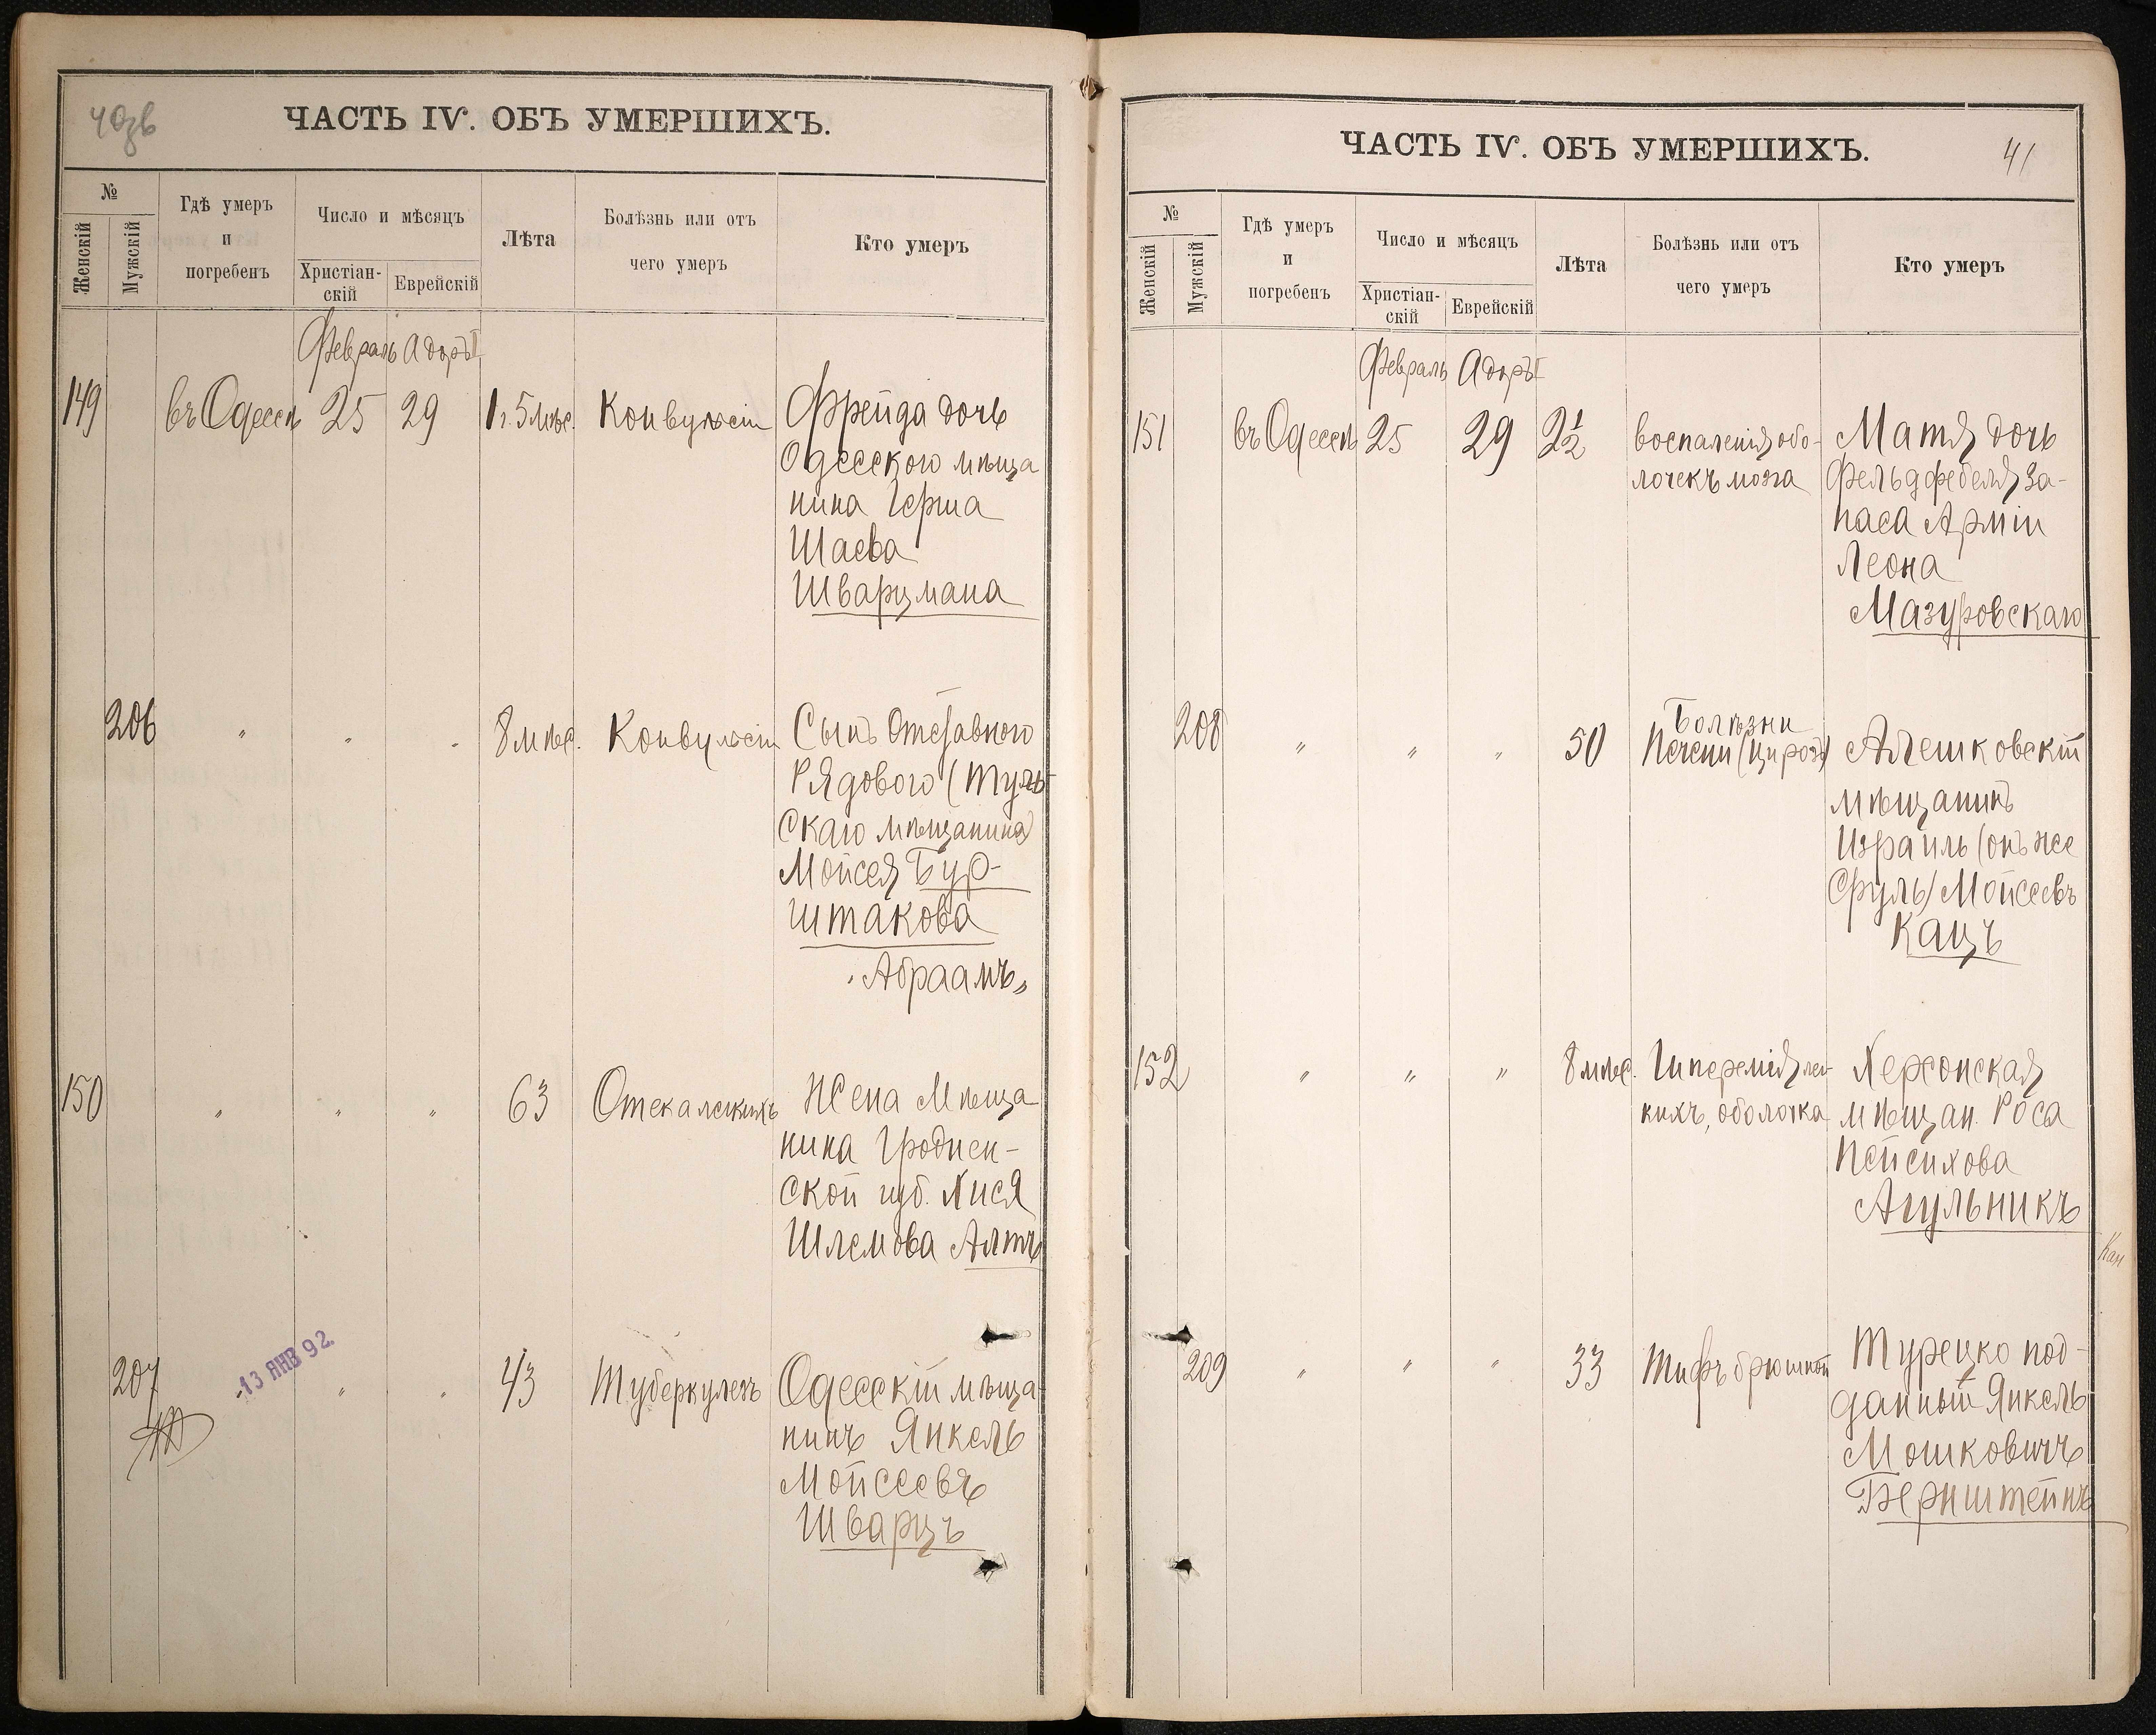 40зв
ЧАСТЬ IV. ОБЪ УМЕРШИХЪ.
№
Женскій
Мужскій
Гдѣ умеръ
и
погребенъ
Число и мѣсяцъ
Христіан-
скій
Еврейскій
Лѣта
Болѣзнь или отъ
чего умеръ
Кто умеръ
Февраль Адоръ I
149 въ Одессѣ 25 29 1 г. 5 мѣс. Конвульсіи Фрейда дочь
Одесского мѣща
нина Герша
Шаева
Шварцмана
206 " " " 8 мѣс. Конвульсіи Сынъ Отставного
Рядового (Туль-
скаго мѣщанина)
Мойсея Бур-
штакова
"Абраамъ"
150 " " " 63 Отека легкихъ Жена Мѣща
нина Гроднен-
ской губ. Хися
Шлемова Альтъ
207 -13 ЯНВ 92. " " 43 Туберкулезъ Одесскій мѣща
нинъ Янкель
Мойсеевъ
Шварцъ
41
ЧАСТЬ IV. ОБЪ УМЕРШИХЪ.
№
Женскій
Мужскій
Гдѣ умеръ
и
погребенъ
Число и мѣсяцъ
Христіан-
скій
Еврейскій
Лѣта
Болѣзнь или отъ
чего умеръ
Кто умеръ
Февраль Адоръ I
151 въ Одессѣ 25 29 2½ воспаленія обо- Матя дочь
лочекъ мозга Фельдфебеля За-
паса Арміи
Леона
Мазуровскаго
Болѣзни
208 " " " 50 Печени (Цирозъ) Алешковскій
мѣщанинъ
Израиль (онъ же
Сруль) Мойсеевъ
Кацъ
152 " " " 8 мѣс. Гиперемія лег- Херсонская
кихъ, оболочка мѣщан. Роса
Пейсихова
Агульникъ
Кан
209 " " " 33 Тифъ брюшной Турецко под-
данный Янкель
Мошковичъ
Бернштейнъ